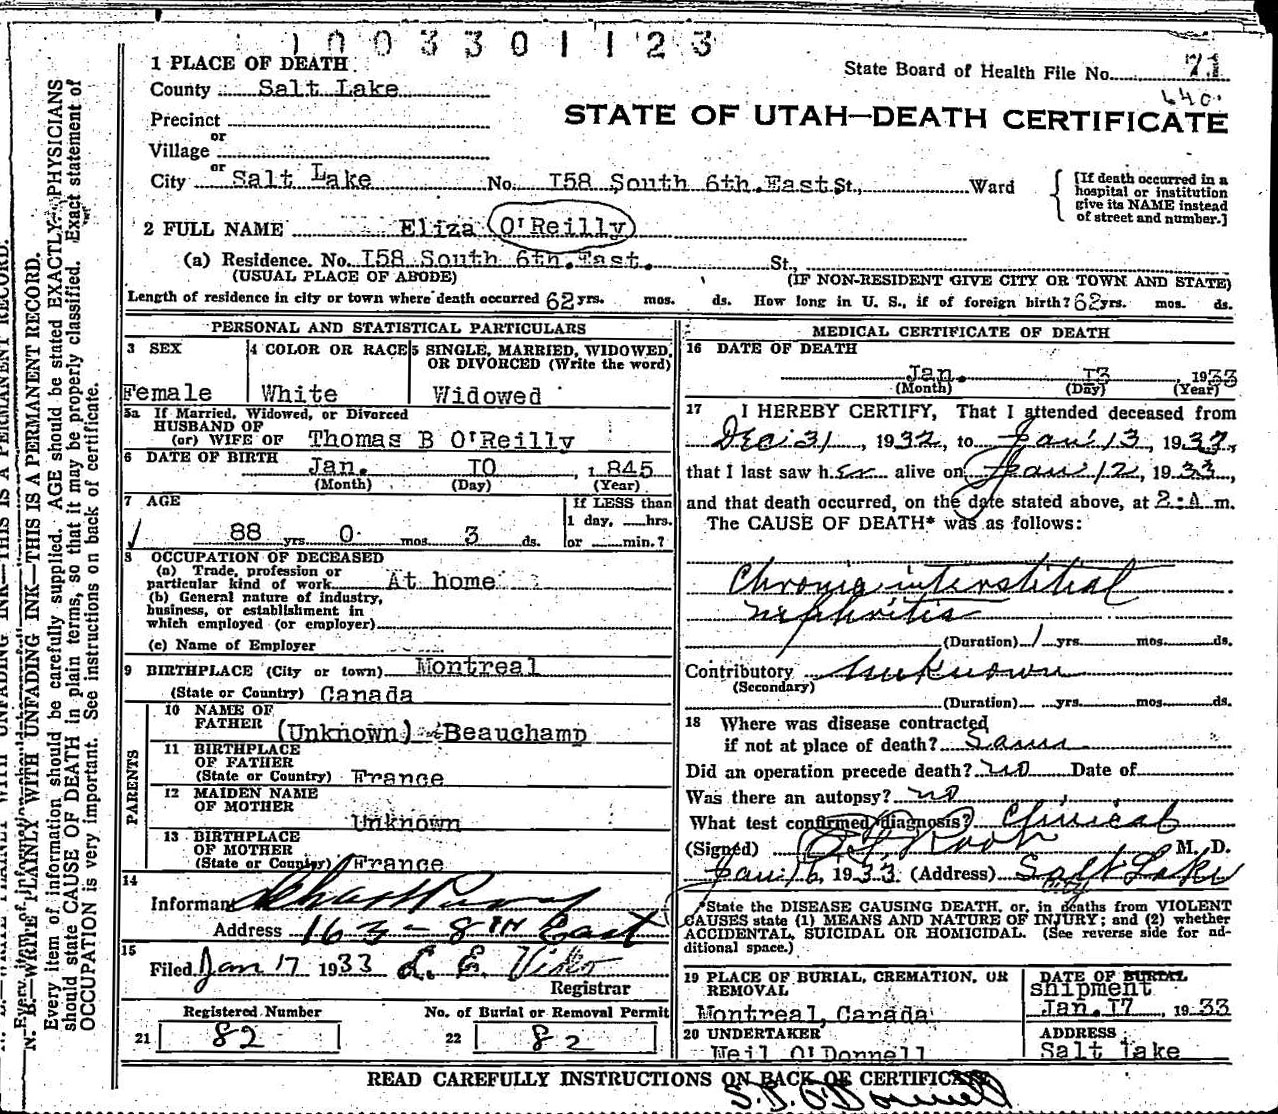 1003301123
1 PLACE OF DEATH
State Board of Health File No. 71
County Salt Lake
640.
STATE OF UTAH—DEATH CERTIFICATE
Precinct
or
Village
or
City Salt Lake No. I58 South 6th.East. St., Ward
[If death occurred in a
hospital or institution
give its NAME instead
of street and number.]
2 FULL NAME Eliza O'Reilly
(a) Residence. No. I58 South 6th.East. St.,
(USUAL PLACE OF ABODE) (IF NON-RESIDENT GIVE CITY OR TOWN AND STATE)
Length of residence in city or town where death occurred 62 yrs. mos. ds. How long in U. S., if of foreign birth? 62 yrs. mos. ds.
PERSONAL AND STATISTICAL PARTICULARS
3 SEX
Female
4 COLOR OR RACE
White
5 SINGLE, MARRIED, WIDOWED,
OR DIVORCED (Write the word)
Widowed
5a If Married, Widowed, or Divorced
HUSBAND OF
(or) WIFE OF Thomas B O'Reilly
6 DATE OF BIRTH
Jan. I0 , 1 845
(Month) (Day) (Year)
7 AGE
88 yrs 0 mos. 3 ds.
If LESS than
1 day, hrs.
or min.?
8 OCCUPATION OF DECEASED
(a) Trade, profession or
particular kind of work At home
(b) General nature of industry,
business, or establishment in
which employed (or employer)
(c) Name of Employer
9 BIRTHPLACE (City or town) Montreal
(State or Country) Canada
PARENTS
10 NAME OF
FATHER (Unknown) Beauchamp
11 BIRTHPLACE
OF FATHER
(State or Country) France
12 MAIDEN NAME
OF MOTHER
Unknown
13 BIRTHPLACE
OF MOTHER
(State or Country) France
14
Informant
Address 163 - 8TH East
15
Filed Jan 17 1933 L. E. Viko
Registrar
Registered Number
21 82
No. of Burial or Removal Permit
22 82
MEDICAL CERTIFICATE OF DEATH
16 DATE OF DEATH
Jan. I3 1933
(Month) (Day) (Year)
17 I HEREBY CERTIFY, That I attended deceased from
Dec 31, 1932, to Jan 13, 1933,
that I last saw her alive on Jan 12, 1933,
and that death occurred, on the date stated above, at 2:A m.
The CAUSE OF DEATH* was as follows:
Chronic interstitial
nephritis
(Duration) 1 yrs. mos. ds.
Contributory unknown
(Secondary)
(Duration) yrs. mos. ds.
18 Where was disease contracted
if not at place of death? Same
Did an operation precede death? no Date of
Was there an autopsy? no
What test confirmed diagnosis? Clinical
(Signed) Root M. D.
Jan 16, 1933 (Address) Salt Lake
City
*State the DISEASE CAUSING DEATH, or, in deaths from VIOLENT
CAUSES state (1) MEANS AND NATURE OF INJURY; and (2) whether
ACCIDENTAL, SUICIDAL OR HOMICIDAL. (See reverse side for ad-
ditional space.)
19 PLACE OF BURIAL, CREMATION, OR
REMOVAL
Montreal, Canada
DATE OF BURIAL
shipment
Jan. I7 , 1933
20 UNDERTAKER
Neil O'Donnell
ADDRESS
Salt Lake
READ CAREFULLY INSTRUCTIONS ON BACK OF CERTIFICATE
S. D. O'Donnell
N. B.—WRITE PLAINLY WITH UNFADING INK—THIS IS A PERMANENT RECORD.
Every item of information should be carefully supplied. AGE should be stated EXACTLY. PHYSICIANS
should state CAUSE OF DEATH in plain terms, so that it may be properly classified. Exact statement of
OCCUPATION is very important. See instructions on back of certificate.